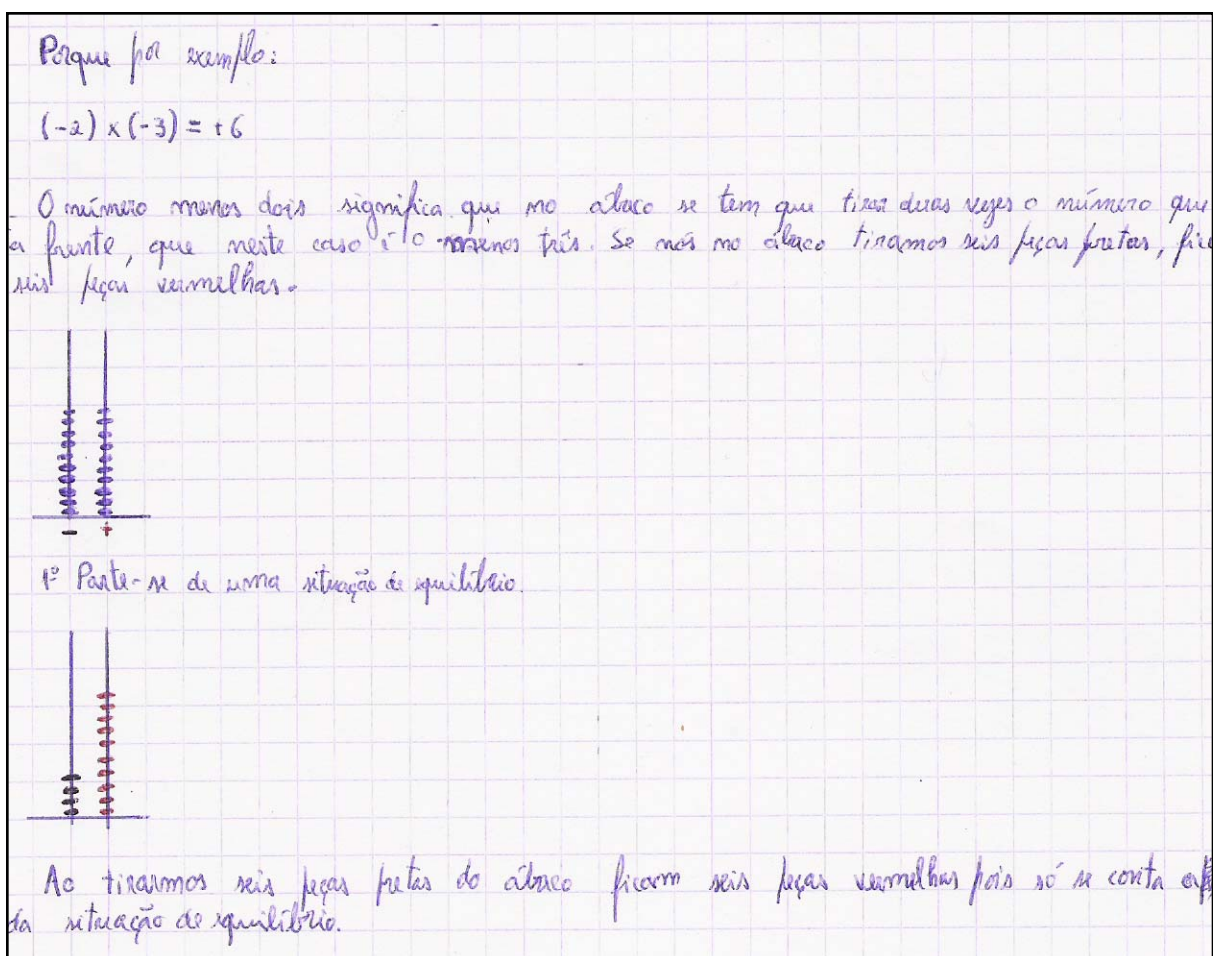 Porque por exemplo:
(-2) x (-3) = +6
O número menos dois significa que no ábaco se tem que tirar duas vezes o número que
a frente, que neste caso é o menos três. Se nós no ábaco tiramos seis peças pretas, fica
seis peças vermelhas.
- +
1º Parte-se de uma situação de equilíbrio.
Ao tirarmos seis peças pretas do ábaco ficam seis peças vermelhas pois só se conta
da situação de equilíbrio.